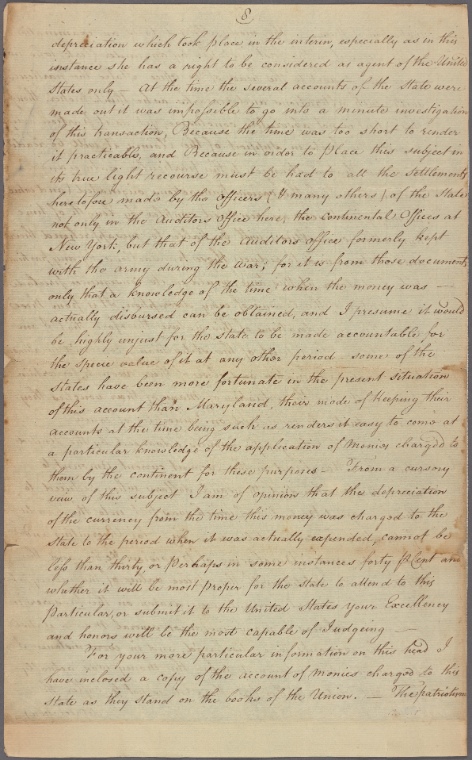 8
depreciation which took place in the interim, especially as in this
instance she has a right to be considered as agent of the United
States only At the time the several accounts of the State were
made out it was impossible to go into a minute investigation
of this transaction, Because the time was too short to render
it practicable, and Because in order to Place this subject in
its true light recourse must be had to all the Settlements
heretofore made by the officers (& many others) of the State
not only in the Auditors office here, the Continental Offices at
New York, but that of the Auditors offices formerly kept
with the army during the War; for it is from those documents
only that a knowledge of the time when the money was —
actually disbursed can be obtained, and I presume it would
be highly unjust for the state to be made accountable for
the specie value of it at any other period some of the
States have been more fortunate in the present situation
of this account than Maryland, their mode of keeping their
accounts at the time being such as renders it easy to come at
a particular knowledge of the application of Monies charged to
them by the continent for these purposes — From a cursory
view of this subject I am of opinion that the depreciation
of the currency from the time this money was charged to the
State to the period when it was actually expended, cannot be
less than thirty, or Perhaps in some instances forty PCent and
whether it will be most proper for the state to attend to this
Particular, or submit it to the United States your Excellency
and honors will be the most capable of Judgeing —
For your more particular information on this head I
have inclosed a copy of the account of Monies charged to this
State as they stand on the books of the Union. — The patriotism